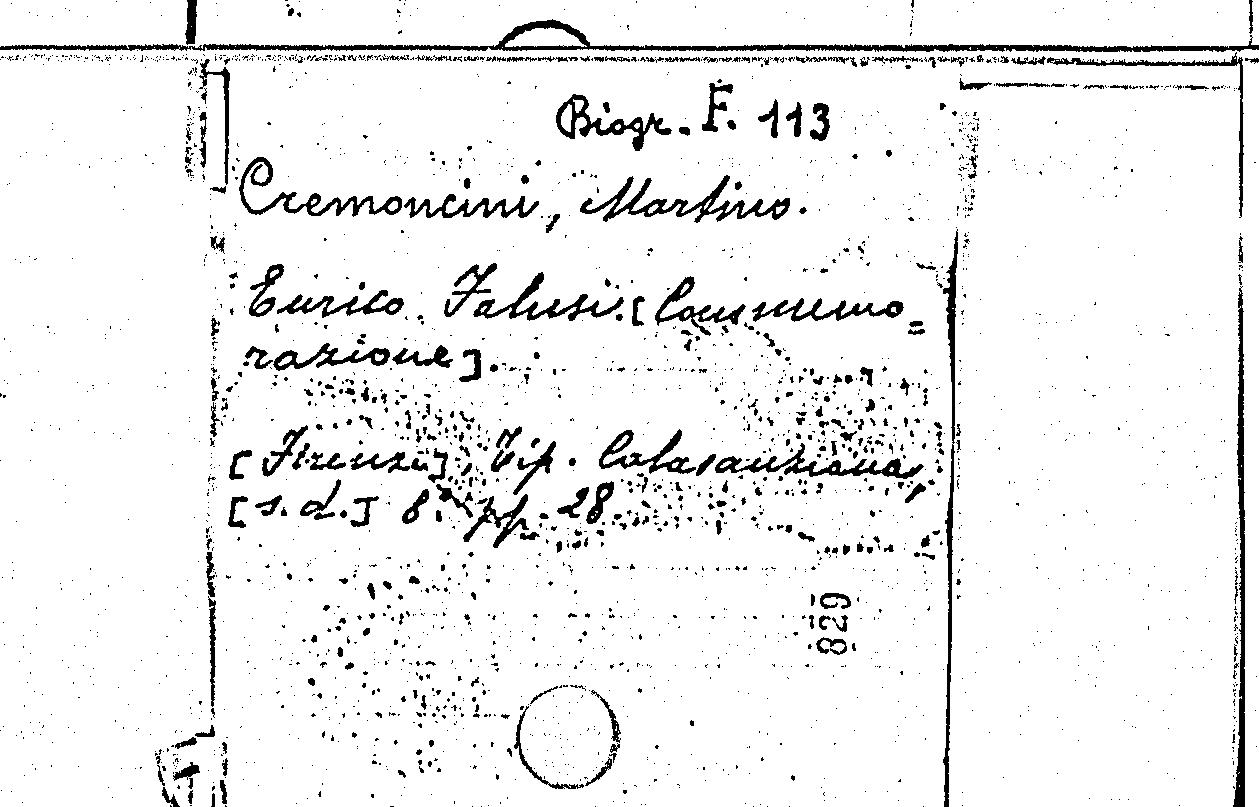 Biogr. F. 113
Cremoncini, Martino.
Enrico Falusi. [Commemo=
razione].
[Firenze], Tip. Calasanziana,
[s.d.] 8° pp. 28.
829